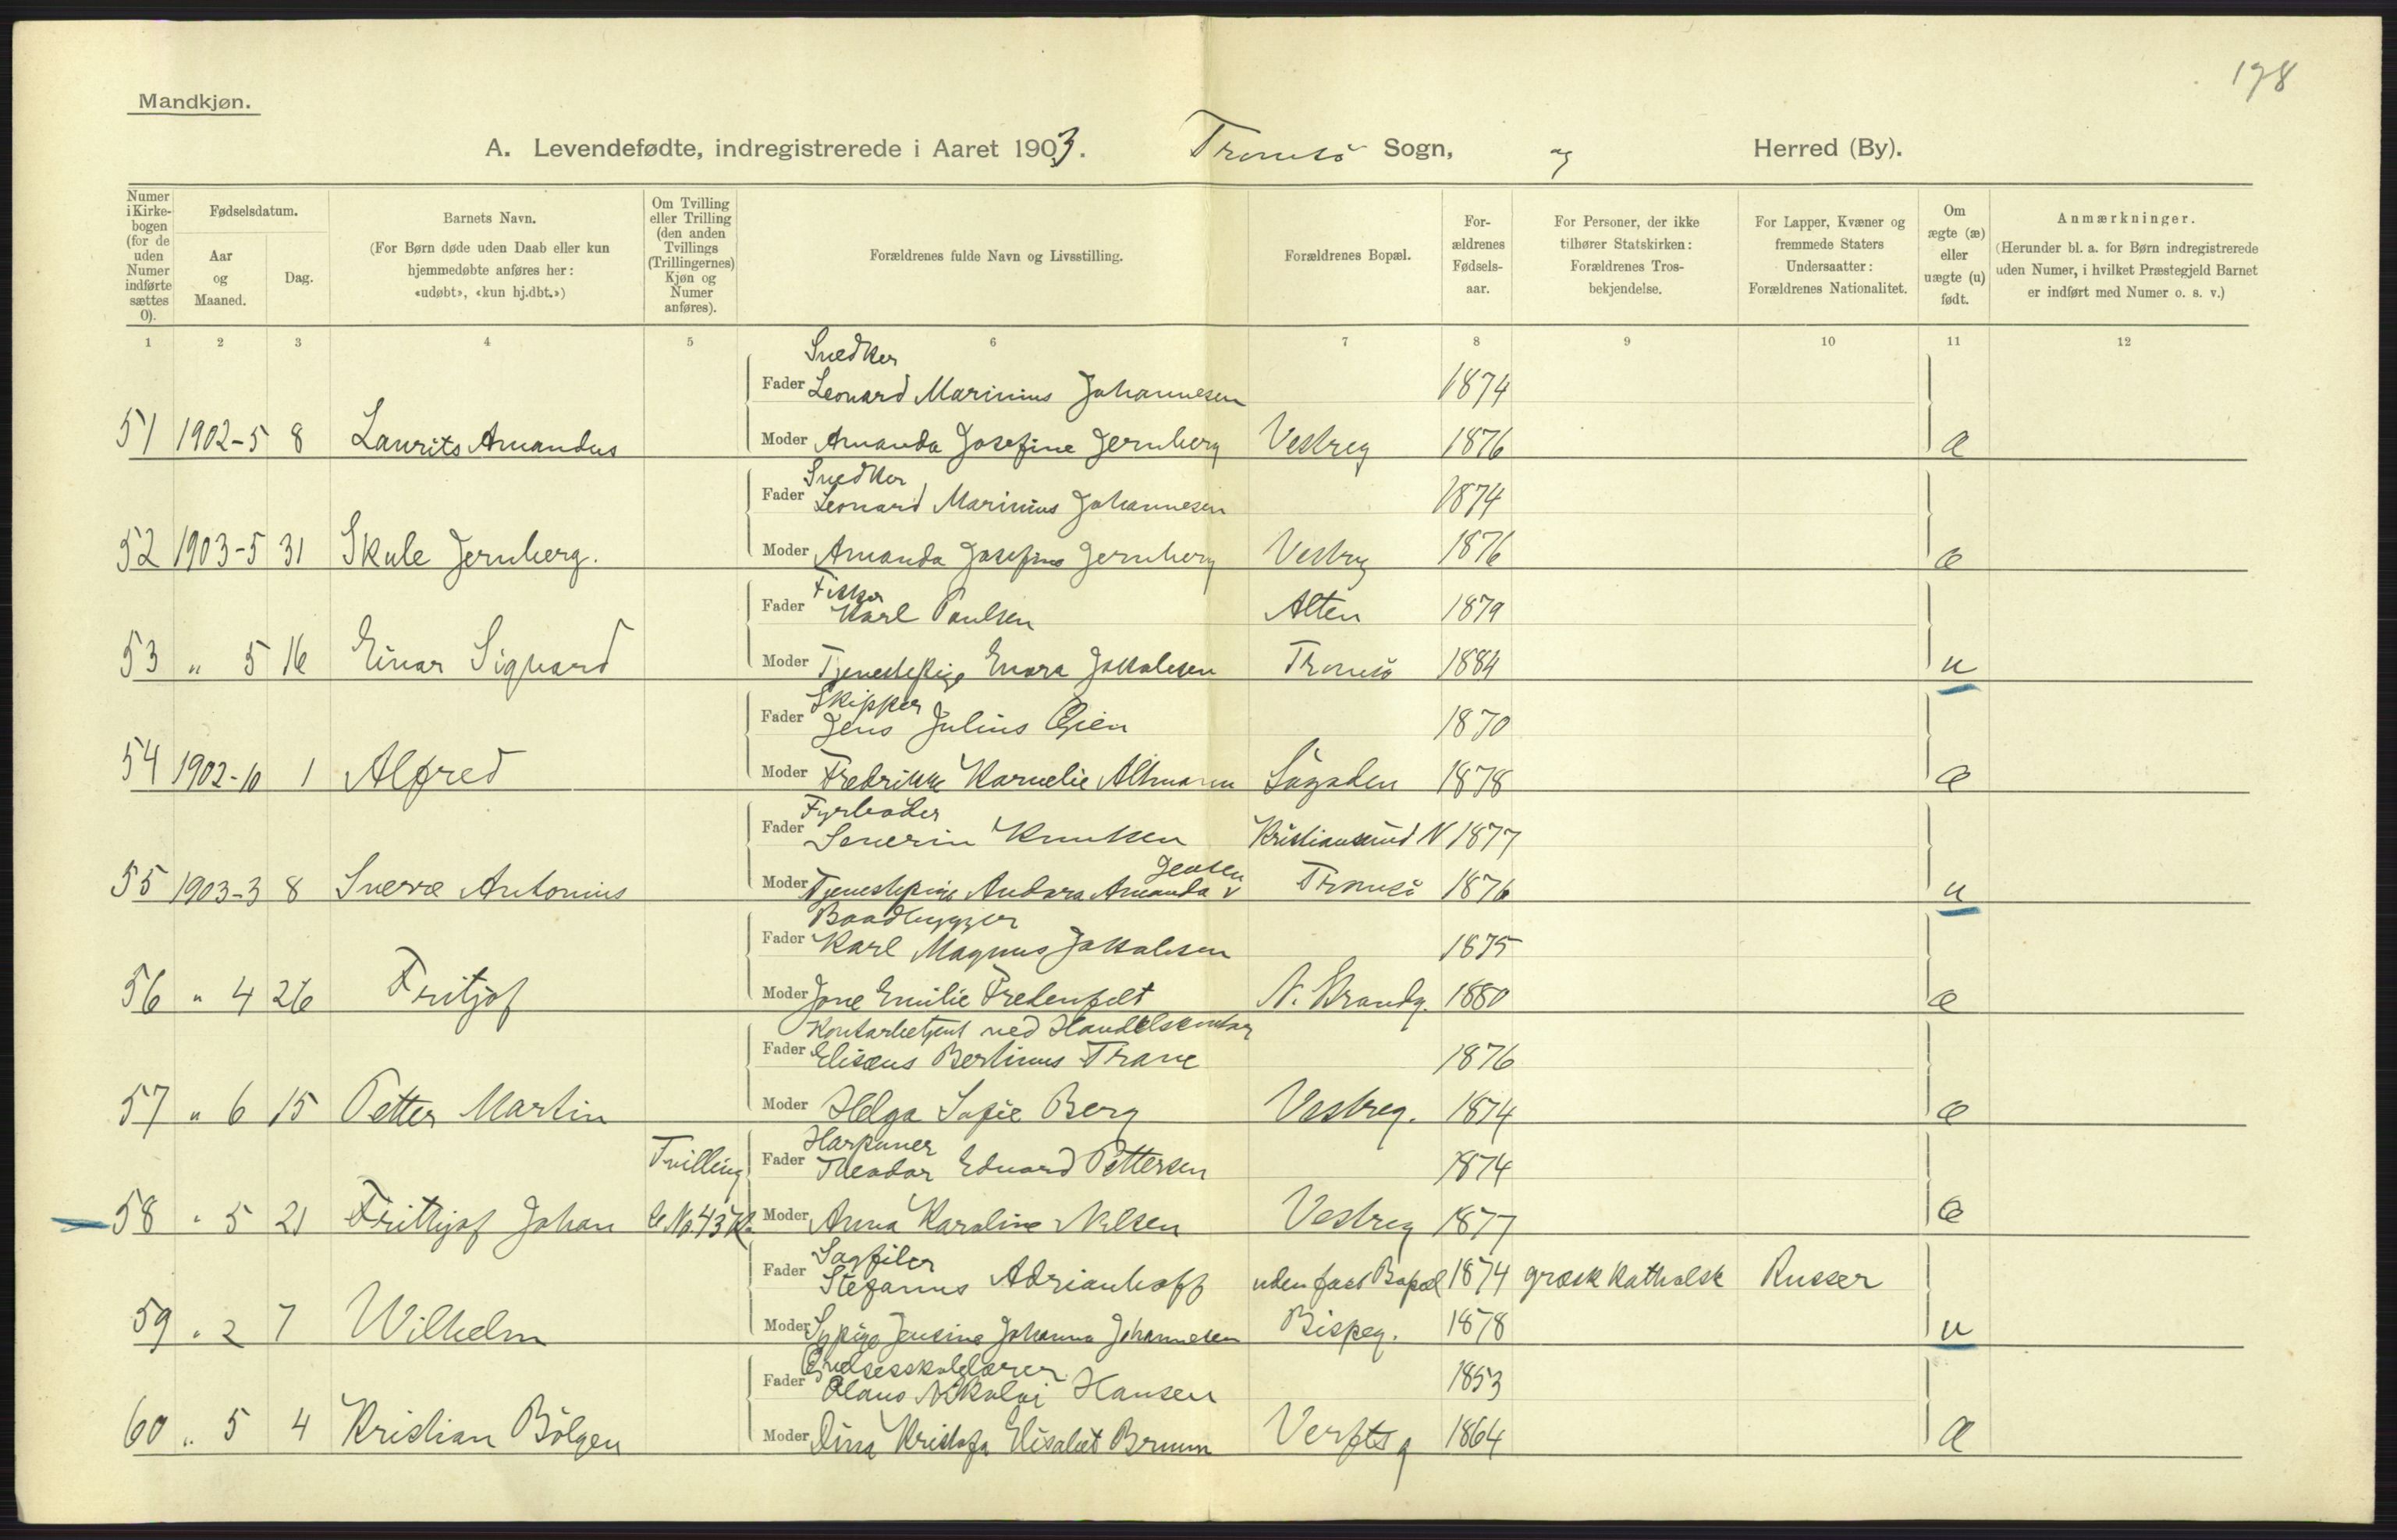 178
Mandkjøn.
A. Levendefødte, indregistrerede i Aaret 1903. Tromsö Sogn, og Herred (By).
Numer i Kirke-bogen (for de uden Numer indførte sættes 0).
Fødselsdatum.
Aar og Maaned.
Dag.
Barnets Navn.
(For Børn døde uden Daab eller kun hjemmedøbte anføres her: «udøbt», «kun hj.dbt.»)
Om Tvilling eller Trilling (den anden Tvillings (Trillingernes) Kjøn og Numer anføres).
Forældrenes fulde Navn og Livsstilling.
Forældrenes Bopæl.
For-ældrenes Fødsels-aar.
For Personer, der ikke tilhører Statskirken: Forældrenes Tros-bekjendelse.
For Lapper, Kvæner og fremmede Staters Undersaatter: Forældrenes Nationalitet.
Om ægte (æ) eller uægte (u) født.
Anmærkninger.
(Herunder bl. a. for Børn indregistrerede uden Numer, i hvilket Præstegjeld Barnet er indført med Numer o. s. v.)
1 2 3 4 5 6 7 8 9 10 11 12
Snedker
Fader Leonard Marinius Johannesen 1874
51 1902-5 8 Laurits Amandus Moder Amanda Josefine Jernberg Vestreg 1876 æ
Snedker
Fader Leonard Marinius Johannesen 1874
52 1903-5 31 Skule Jernberg. Moder Amanda Josefine Jernberg Vestreg 1876 æ
Fisker
Fader Karl Paulsen Alten 1879
53 " 5 16 Einar Sigvard Moder Tjenestepige Enora Jakobsen Tromsö 1884 u
Skipper
Fader Jens Julius Öien 1870
54 1902-10 1 Alfred Moder Fredrikke Kornelie Altmann Sögaden 1878 æ
Fyrböder
Fader Severin Knutsen Kristiansund N 1877
Jensen
55 1903-3 8 Sverre Antonius Moder Tjenestepige Andora Amanda v Tromsö 1876 u
Baadbygger
Fader Karl Magnus Jakobsen 1875
56 " 4 26 Fritjof Moder Jone Emilie Fredenfelt N. Strandg. 1880 æ
Kontorbetjent ved
Fader Elisæus Bertinus Trane 1876
57 " 6 15 Petter Martin Moder Helga Sofie Berg Vestreg. 1874 æ
Harpuner
Tvilling Fader Theodor Eduard Pettersen 1874
58 " 5 21 Frithjof Johan No 43 Moder Anna Karoline Nilsen Vestreg 1877 æ
Sagfiler
Fader Stefanus Adrianhoff uden fast Bopæl 1874 græsk katholsk Russer
59 " 2 7 Wilhelm Moder Sypige Jensine Johanna Johannesen Bispeg. 1878 u
Fader Olaus Nikolai Hansen 1853
60 " 5 4 Kristian Bölgen Moder Dina Kristofa Elisabet Bruun Verftsg 1864 æ